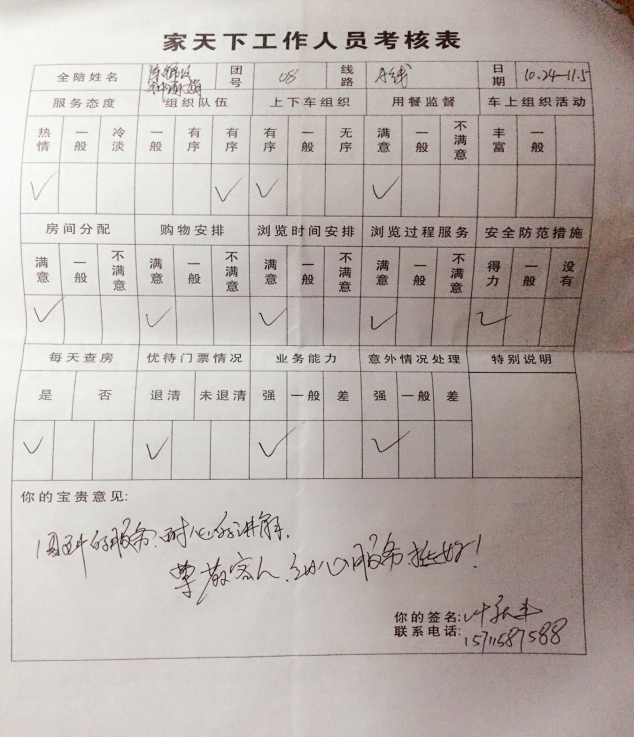 家天下工作人员考核表
全陪姓名 团号 08 线路 A线 日期 10.24—11.5
服务态度 组织队伍 上下车组织 用餐监督 车上组织活动
热情 一般 冷淡 一般 有序 有序 有序 一般 无序 满意 一般 不满意 丰富 一般
✓ ✓ ✓ ✓
房间分配 购物安排 浏览时间安排 浏览过程服务 安全防范措施
满意 一般 不满意 满意 一般 不满意 满意 一般 不满意 满意 一般 不满意 得力 一般 没有
✓ ✓ ✓ ✓ ✓
每天查房 优待门票情况 业务能力 意外情况处理 特别说明
是 否 退清 未退清 强 一般 差 强 一般 差
✓ ✓ ✓ ✓
你的宝贵意见:
周到的服务、耐心的讲解、
尊敬客人、细心服务挺好!
你的签名:
联系电话: 15711587588